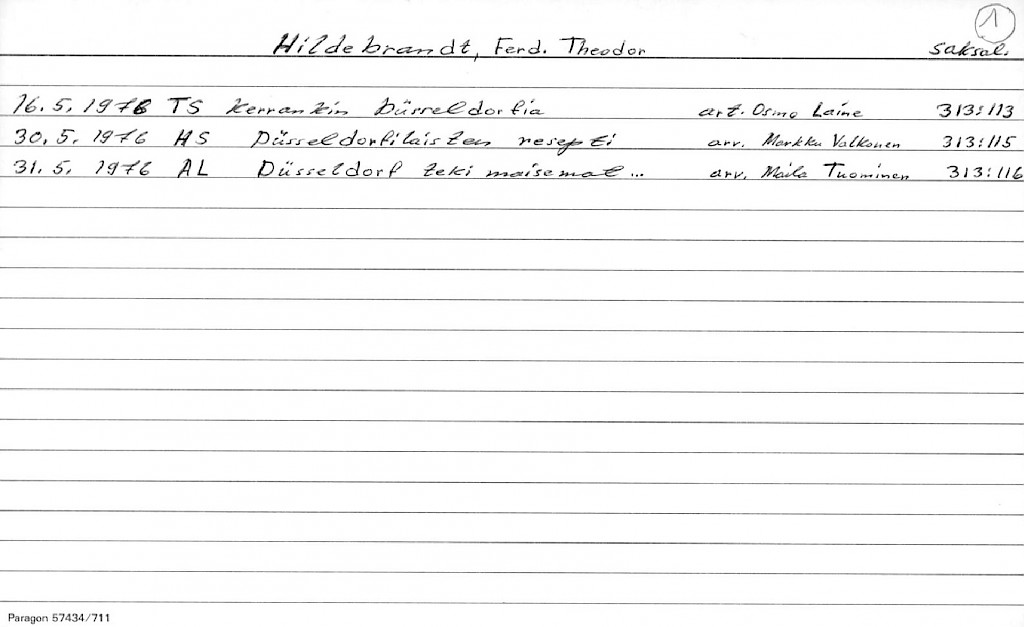 1
Hildebrandt, Ferd. Theodor saksal.
16.5.1976 TS Kerrankin Düsseldorfia art. Osmo Laine 313:113
30.5.1976 HS Düsseldorfilaisten resepti arv. Markku Valkonen 313:115
31.5.1976 AL Düsseldorf teki maisemat... arv. Maila Tuominen 313:116
Paragon 57434/711